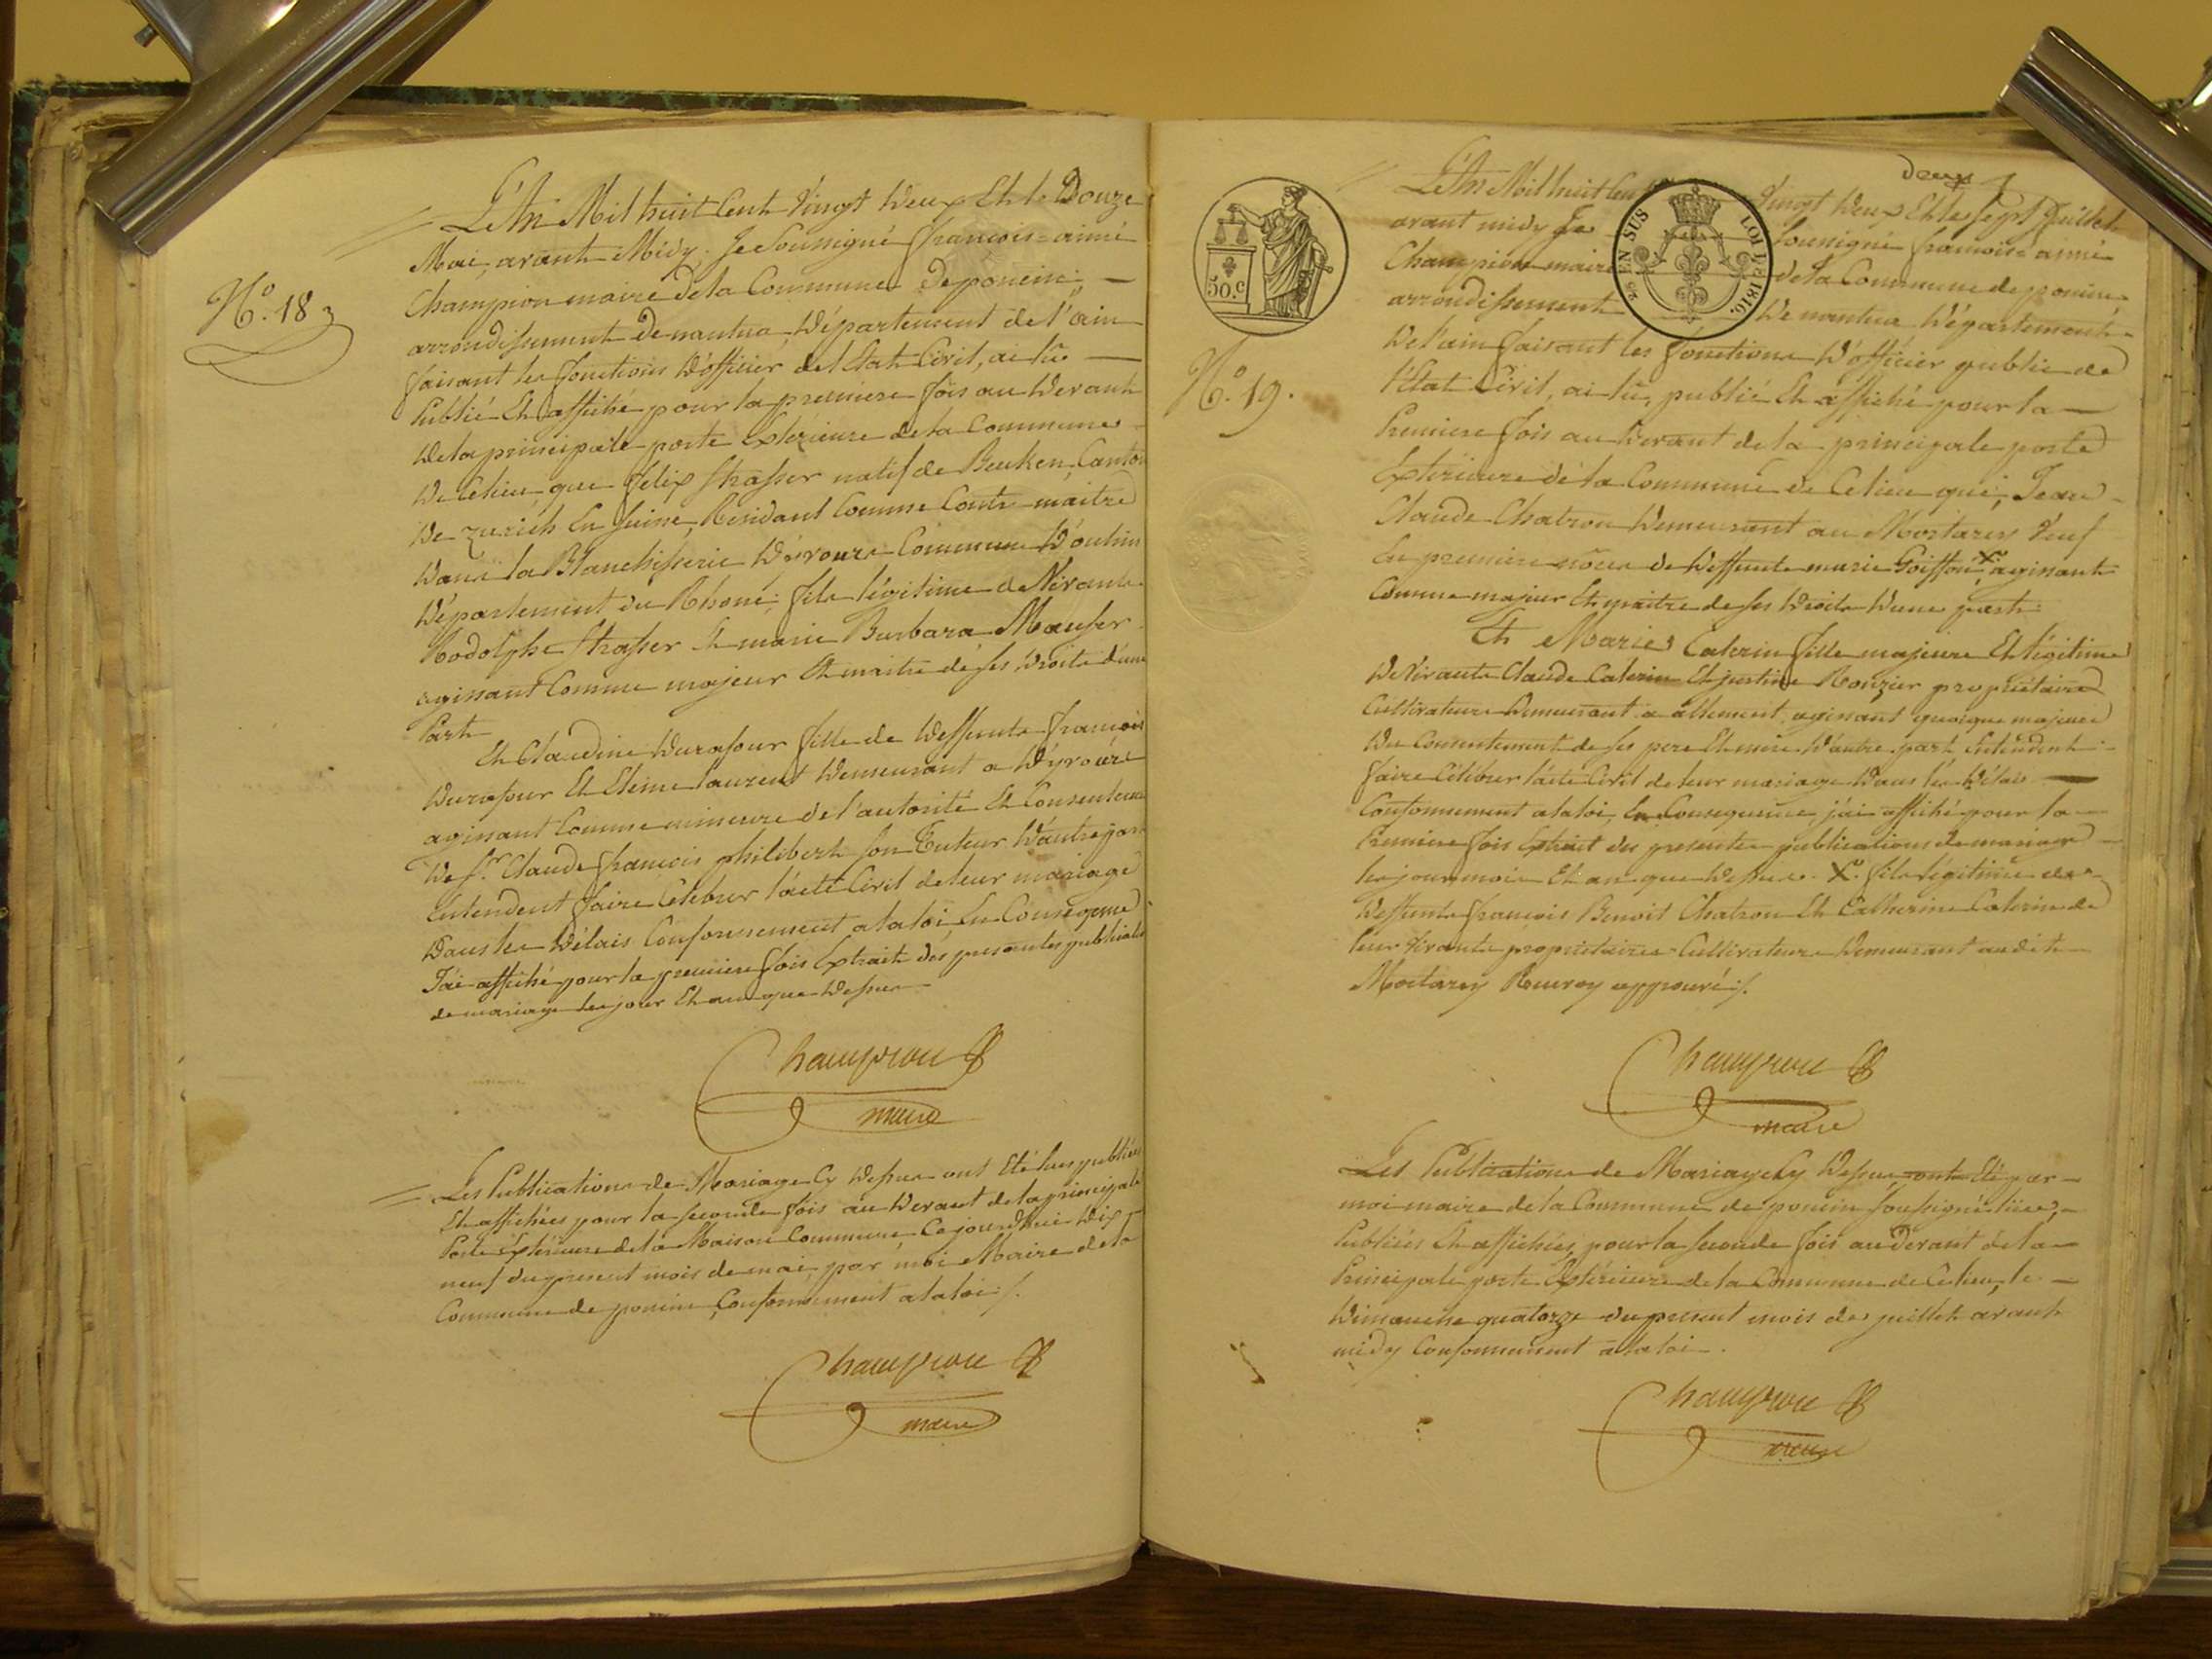 L'An Mil huit Cent Vingt Deux Et le Douze
Mai, avant Midy, Je Soussigné françois-aimé
Champion maire de la Commune De poncin,
arrondissement De nantua, Département de l'ain
faisant les fonctions D'officier de l'Etat Civil, ai lû
Publié Et affiché pour la premiere fois au Devant
De la principale porte Exterieure de la Commune
De Ce lieu, que felix Strasser natif de Benken, Canton
De Zurich En Suisse, Residant Comme Contre-maitre
Dans la Blanchisserie D'yvours Commune D'oulin
Département du Rhone, fils légitime de Vivants
Rodolphe Strasser Et marie Barbara Mauser
agissant Comme majeur Et maitre de ses Droits d'une
Part
Et Claudine Durafour fille de Deffunts françois
Durafour Et Etiene laurent Demeurant a D'yvours
agissant Comme mineure de l'autorité Et Consentement
De Sr. Claude françois philibert son Tuteur D'autre part
Entendent faire Célébrer l'acte Civil de leur mariage
Dans les Délais Conformement a la loi, En Conséquence
J'ai affiché pour la premiere fois Extrait des presentes publications
de mariage les jour Et an que Dessus
Champion
maire
No. 18
Les Publications de Mariage Cy Dessus ont Eté lues publiées
Et affichées pour la seconde fois au Devant de la principale
Porte Extérieure de la Maison Commune, Ce jourd'hui Dix
neuf du present mois de mai, par moi Maire de la
Commune de poncin, Conformement a la loi
Champion
maire
50.c
25 EN SUS LOI DE 1816.
deux
L'An Mil huit Cent Vingt Deux Et le sept Juillet
avant midy Je Soussigné françois aimé
Champion maire de la Commune de poncin
arrondissement De nantua Département
De l'ain faisant les fonctions D'officier public de
l'Etat Civil, ai lû, publié Et affiché pour la
Premiere fois au Devant de la principale porte
Extérieure de la Commune de Ce lieu que, Jean
Claude Chatron Demeurant au Mortarey Veuf
En premiere nôces de Deffunte marie Goiffon X agissant
Comme majeur Et maitre de ses Droits D'une part
Et Marie Caterin fille majeure Et légitime
De Vivants Claude Caterin Et justine Rouzier propriétaires
Cultivateurs Demeurant a allement, agissant quoique majeure
Du Consentement de ses pere Et mere D'autre part Entendent
faire Célébrer l'acte Civil de leur mariage Dans les Délais
Conformement a la loi, En Consequence j'ai affiché pour la
Premiere fois Extrait des presentes publications de mariage
les jour, mois Et an que Dessus. X fils légitime de
Deffunts françois Benoit Chatron Et Catherine Caterin de
leur Vivants propriétaires Cultivateurs Demeurant au dit
Mortarey Renvoy approuvé
Champion
maire
No. 19.
Les Publications de Mariage Cy Dessus ont Eté par
moi maire de la Commune de poncin soussigné lües,
Publiées Et affichées, pour la seconde fois au Devant de la
Principale porte Extérieure de la Commune de Ce lieu, le
Dimanche quatorze du present mois de juillet avant
midy Conformement a la loi.
Champion
maire